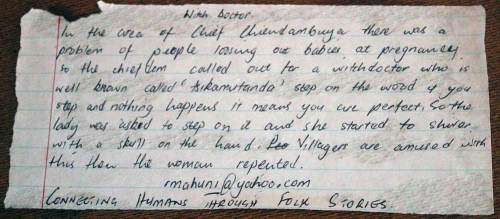 Witch Doctor
In the area of Chief Chiendambuya there was a
problem of people loosing out babies at pregnancy
so the chiefdem called out for a witchdoctor who is
well known called 'tsikamutanda' step on the wood if you
step and nothing happens it means you are perfect. So the
lady was asked to step on it and she started to shiver
with a skull on the hand. Villagers are amused with
this how the woman repented.
rmahuni@yahoo.com
CONNECTING HUMANS THROUGH FOLK STORIES.